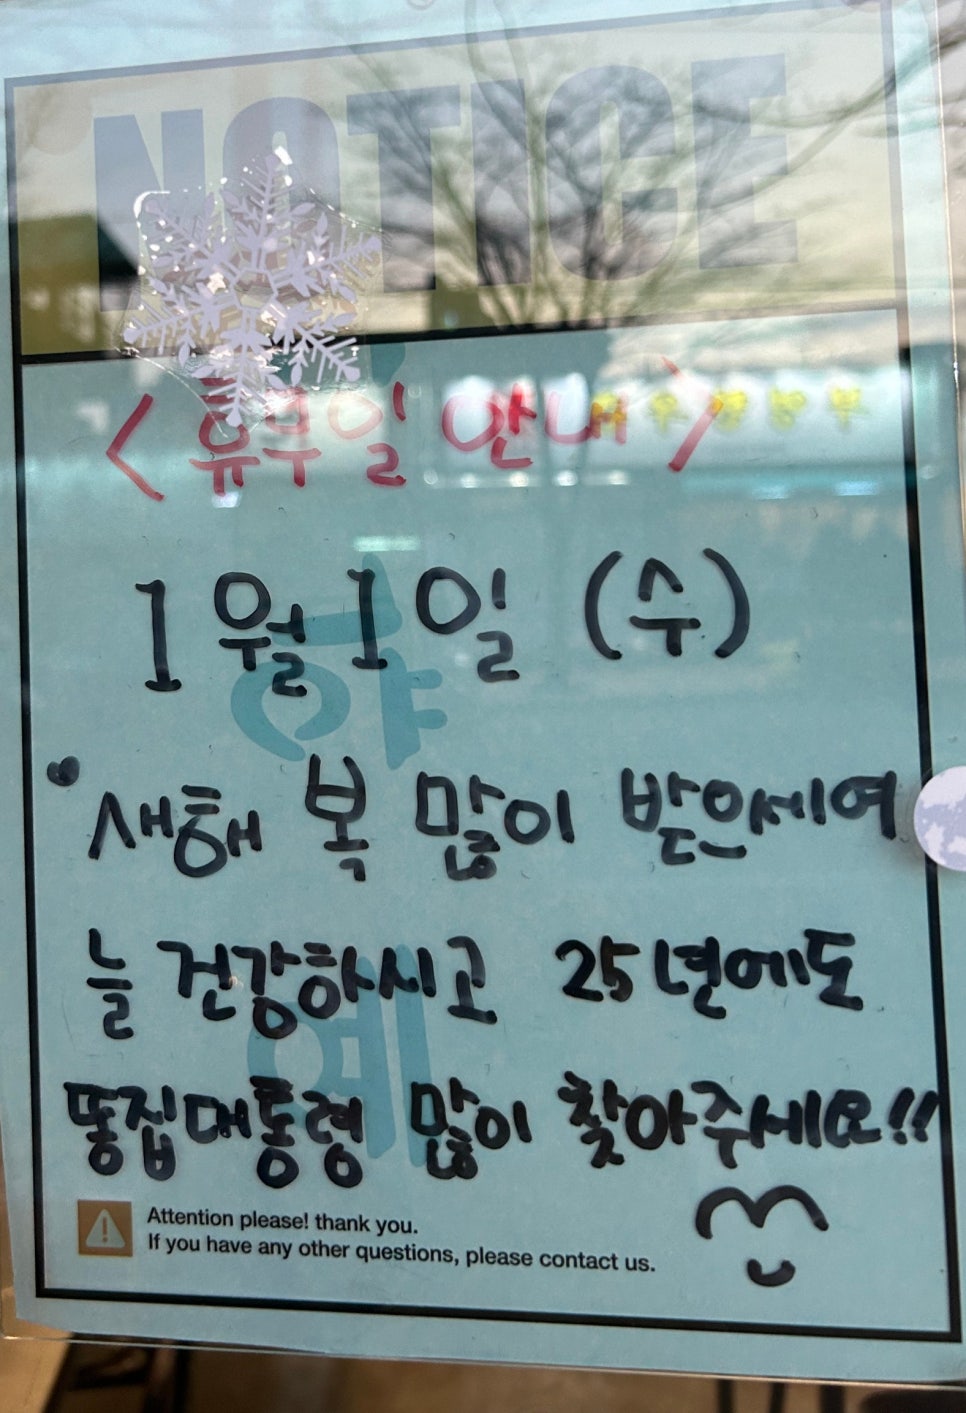 NOTICE
<휴무일 안내>
1월 1일 (수)
·새해 복 많이 받으세여
늘 건강하시고 25년에도
똥집대통령 많이 찾아주세요!!
Attention please! thank you.
If you have any other questions, please contact us.